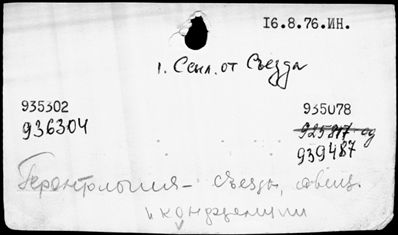 16.8.76.ИН.
1. Ссыл. от Съезда
935302
936304
935078
925817 од
939487
Геронтология - съезды, совещ.
и конференции